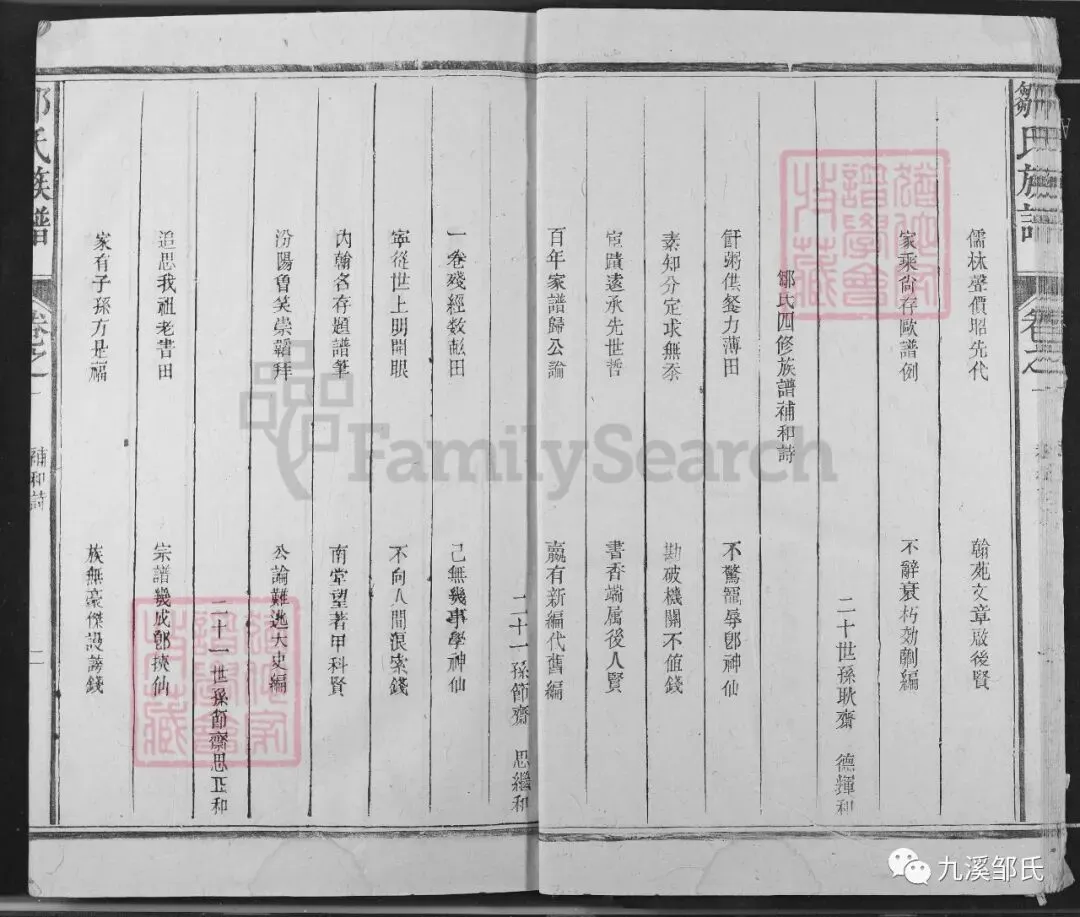 鄒氏族譜
卷之一
儒林聲價昭先代 翰苑文章啟後賢
家乘尙存歐譜例 不辭衰朽効劘編
二十世孫耿齋 德輝和
鄒氏四修族譜補和詩
飦粥供餐力薄田 不驚寵辱卽神仙
素知分定求無忝 勘破機關不値錢
宦蹟遠承先世哲 書香端属後人賢
百年家譜歸公論 贏有新編代舊編
二十一孫節齋 思繼和
一卷殘經数畝田 己無幾事學神仙
寧從世上明開眼 不向人間浪索錢
内翰名存題譜筆 南堂望著甲科賢
汾陽曾笑崇韜拜 公論難逃大史編
二十一世孫節齋思正和
追思我祖老書田 宗譜幾成卽挾仙
家有子孫方是福 族無豪傑謾謗錢
鄒氏族譜
卷之一
補和詩
二
FamilySearch
九溪邹氏